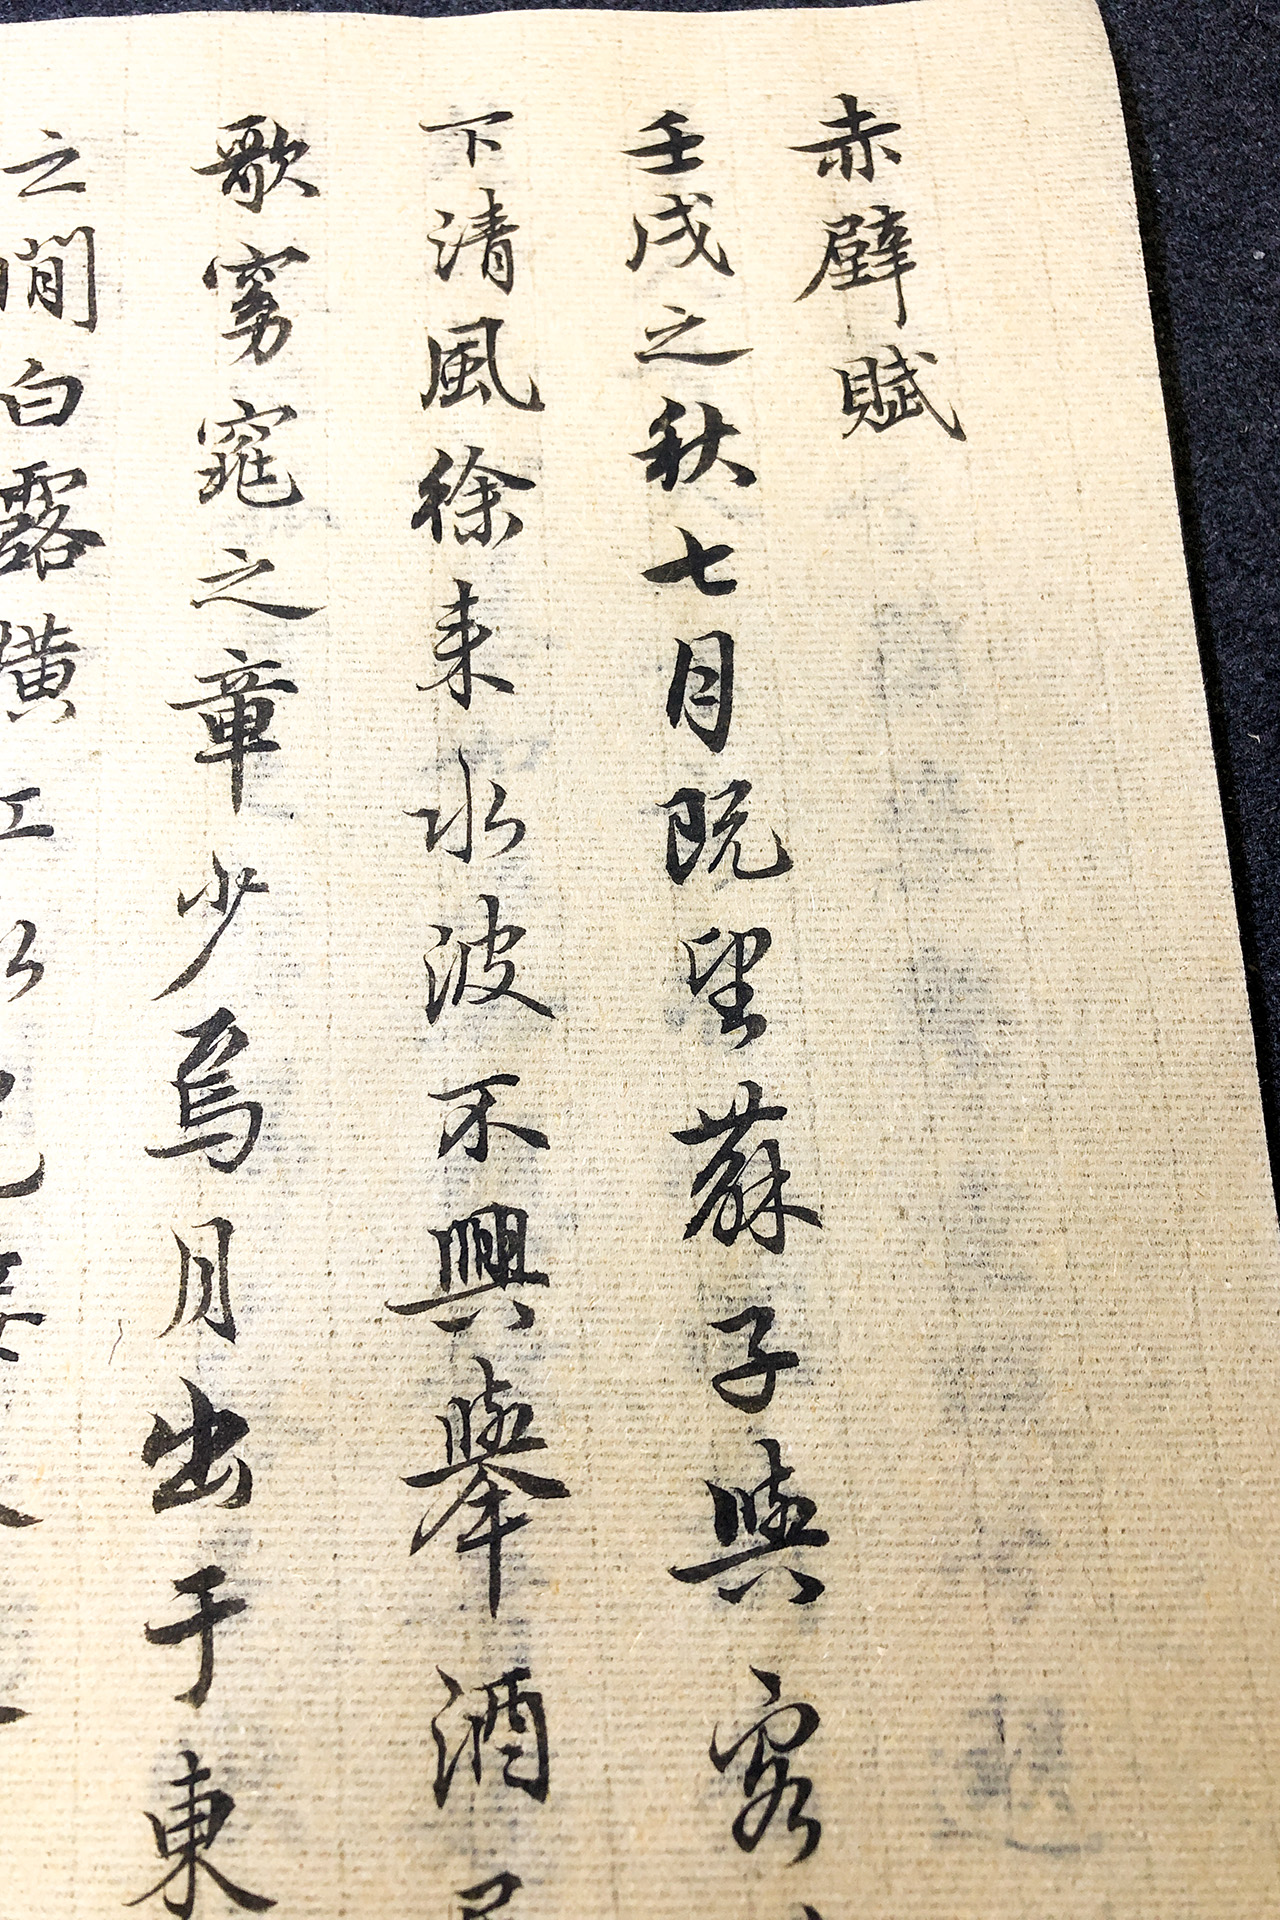 赤壁賦
壬戌之秋七月既望蘇子與客
下清風徐来水波不興舉酒
歌窈窕之章少焉月出于東
之間白露橫江